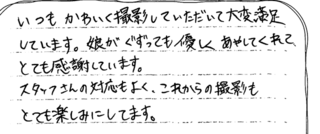 いつも かわいく撮影していただいて大変満足
しています。娘がぐずっても優しく あやしてくれて、
とても感謝しています。
スタッフさんの対応もよく、これからの撮影も
とても楽しみにしてます。